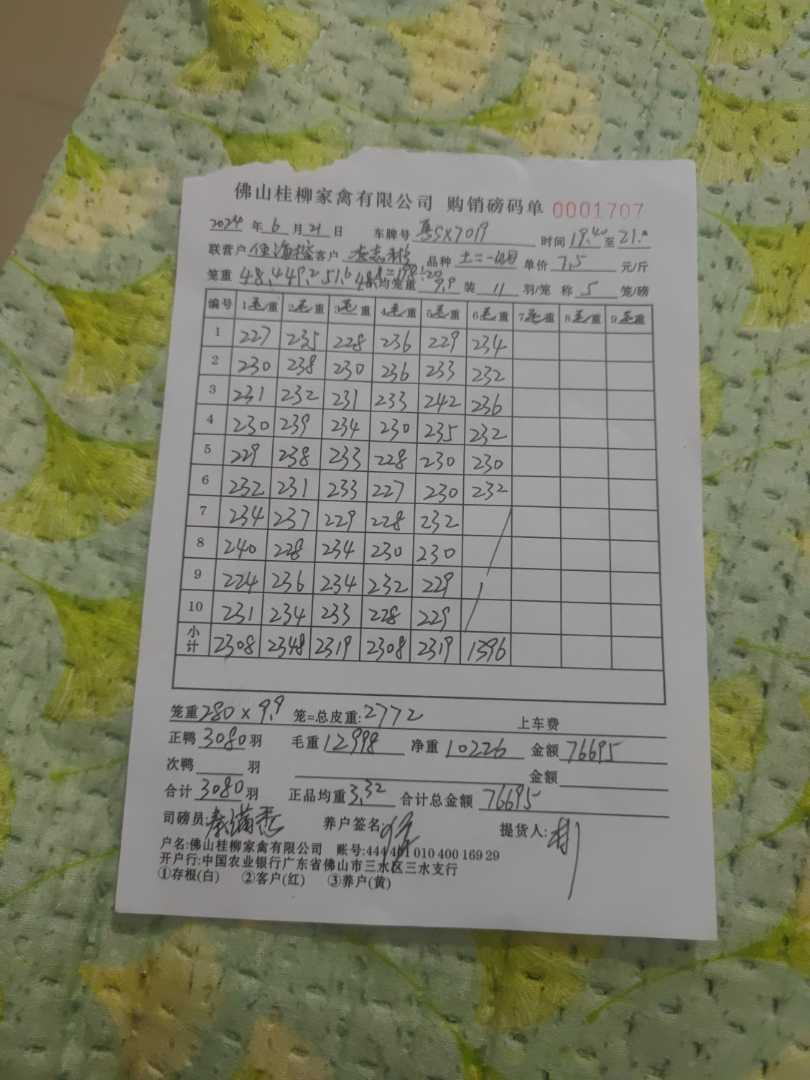 佛山桂柳家禽有限公司 购销磅码单 0001707
2024 年 6 月 21 日 车牌号 SX7019 时间 19.40 至 21.
联营户 客户 品种 土二 单价 7.5 元/斤
笼重 48.4 49.2 51.6 均笼重 9.9 装 11 羽/笼 称 5 笼/磅
编号 1毛重 2毛重 3毛重 4毛重 5毛重 6毛重 7毛重 8毛重 9毛重
1 227 235 228 236 229 234
2 230 238 230 236 233 232
3 231 232 231 233 242 236
4 230 239 234 230 235 232
5 229 238 233 228 230 230
6 232 231 233 227 230 232
7 234 237 229 228 232
8 240 228 234 230 230
9 224 236 234 232 229
10 231 234 233 228 229
小计 2308 2348 2319 2308 2319 1396
笼重 280 × 9.9 笼=总皮重: 2772 上车费
正鸭 3080 羽 毛重 12998 净重 10226 金额 76695
次鸭 羽 金额
合计 3080 羽 正品均重 3.32 合计总金额 76695
司磅员: 养户签名 提货人:
户名:佛山桂柳家禽有限公司 账号:444 401 010 400 169 29
开户行:中国农业银行广东省佛山市三水区三水支行
①存根(白) ②客户(红) ③养户(黄)